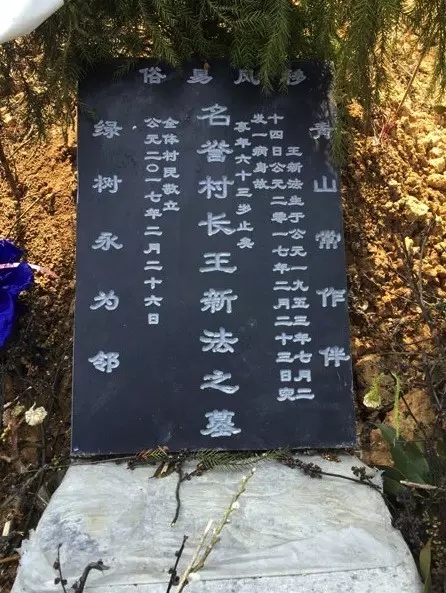 移风易俗
青山常作伴
王新法生于公元一九五三年七月二
十四日公元二零一七年二月二十三日突
发一病身故
享年六十三岁止矣
名誉村长王新法之墓
全体村民敬立
公元二〇一七年二月二十六日
绿树永为邻